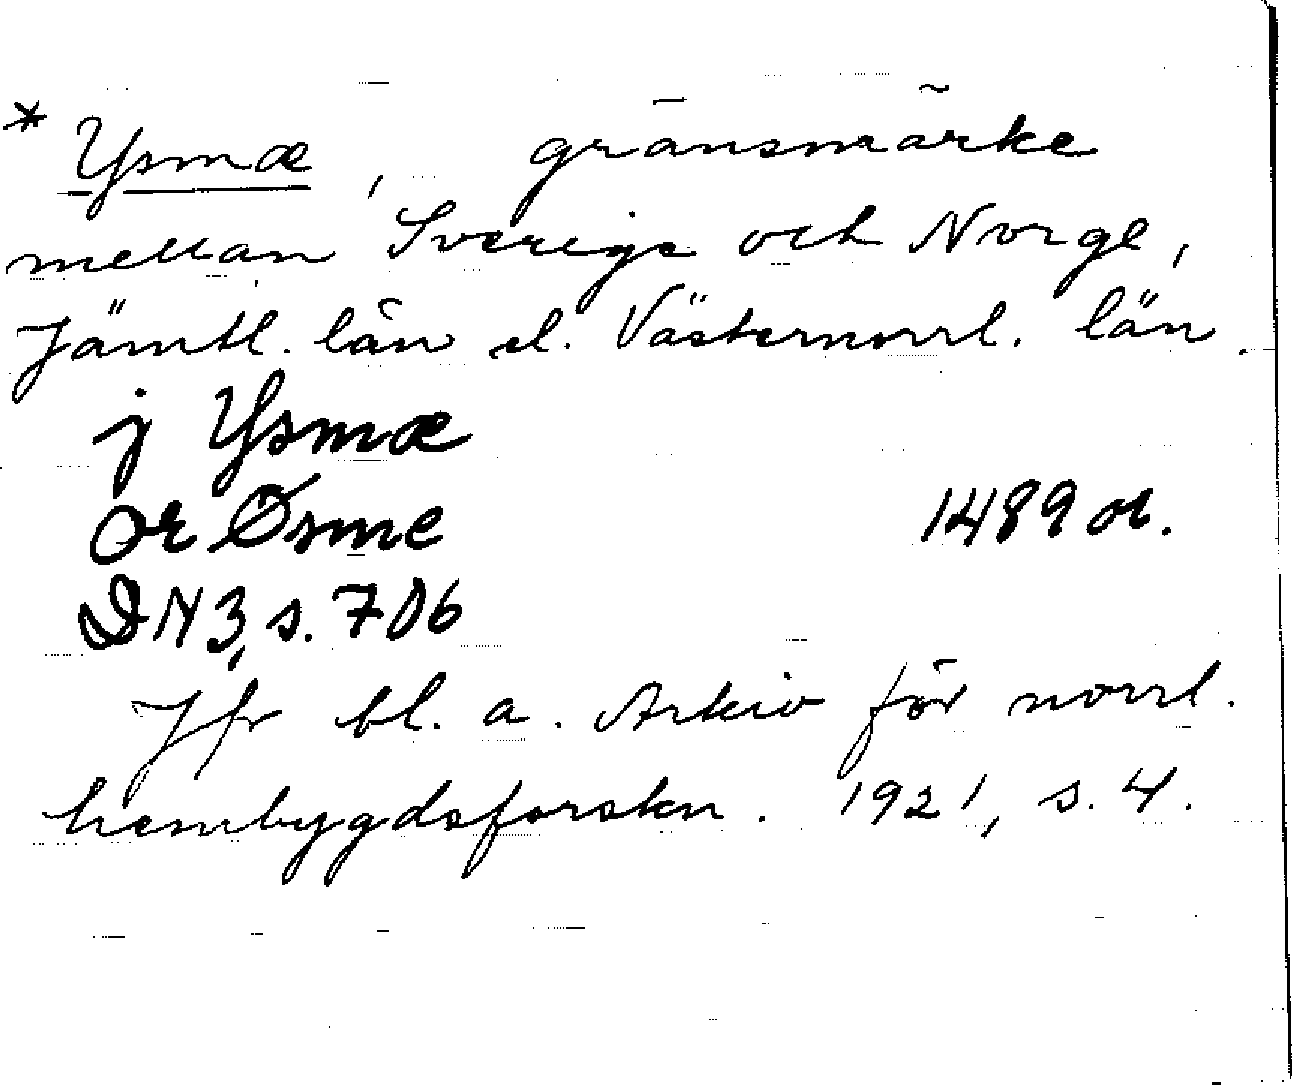 * Ysmæ, gränsmärke
mellan Sverige och Norge,
Jämtl. län el. Västernorrl. län.
j Ysmæ
or Øsme 1489 or.
DN 3, s. 706
Jfr bl. a. Arkiv för norrl.
hembygdsforskn. 1921, s. 4.